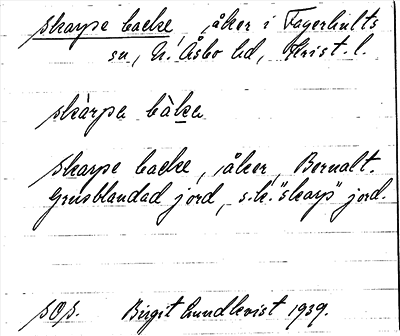 skarpe backe, åker i Fagerhults
sn, N. Åsbo hd, Krist. l.
skàrpa bàka
skarpe backe, åker, Bernalt.
Grusblandad jord, s.k. "skarp" jord.
Birgit Lundkvist 1939.